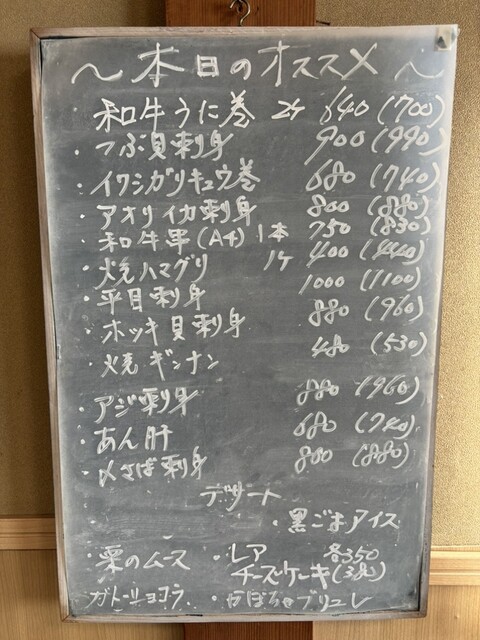 ～本日のオススメ～
・和牛うに巻 2ヶ 640(700)
・つぶ貝刺身 900(990)
・イワシガリキュウ巻 680(740)
・アオリイカ刺身 800(880)
・和牛串(A4) 1本 750(830)
・焼ハマグリ 1ヶ 400(440)
・平目刺身 1000(1100)
・ホッキ貝刺身 880(960)
・焼ギンナン 480(530)
・アジ刺身 880(960)
・あん肝 680(740)
・〆さば刺身 800(880)
デザート
・黒ごまアイス
・栗のムース ・レアチーズケーキ 各350(380)
ガトーショコラ ・かぼちゃブリュレ